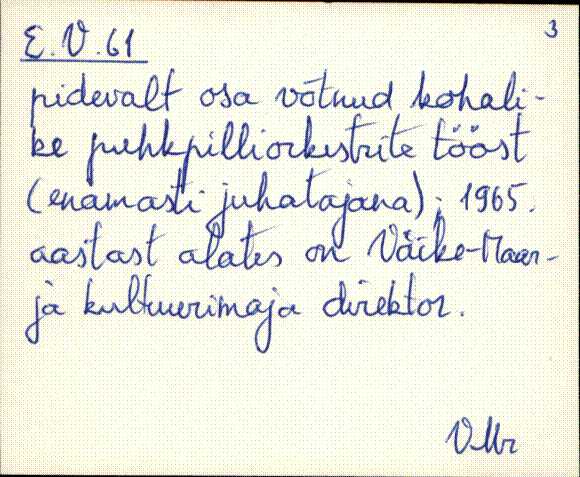 3
E.V.61
pidevalt osa võtnud kohali-
ke puhkpilliorkestrite tööst
(enamasti juhatajana); 1965.
aastast alates on Väike-Maar-
ja kultuurimaja direktor.
VMr